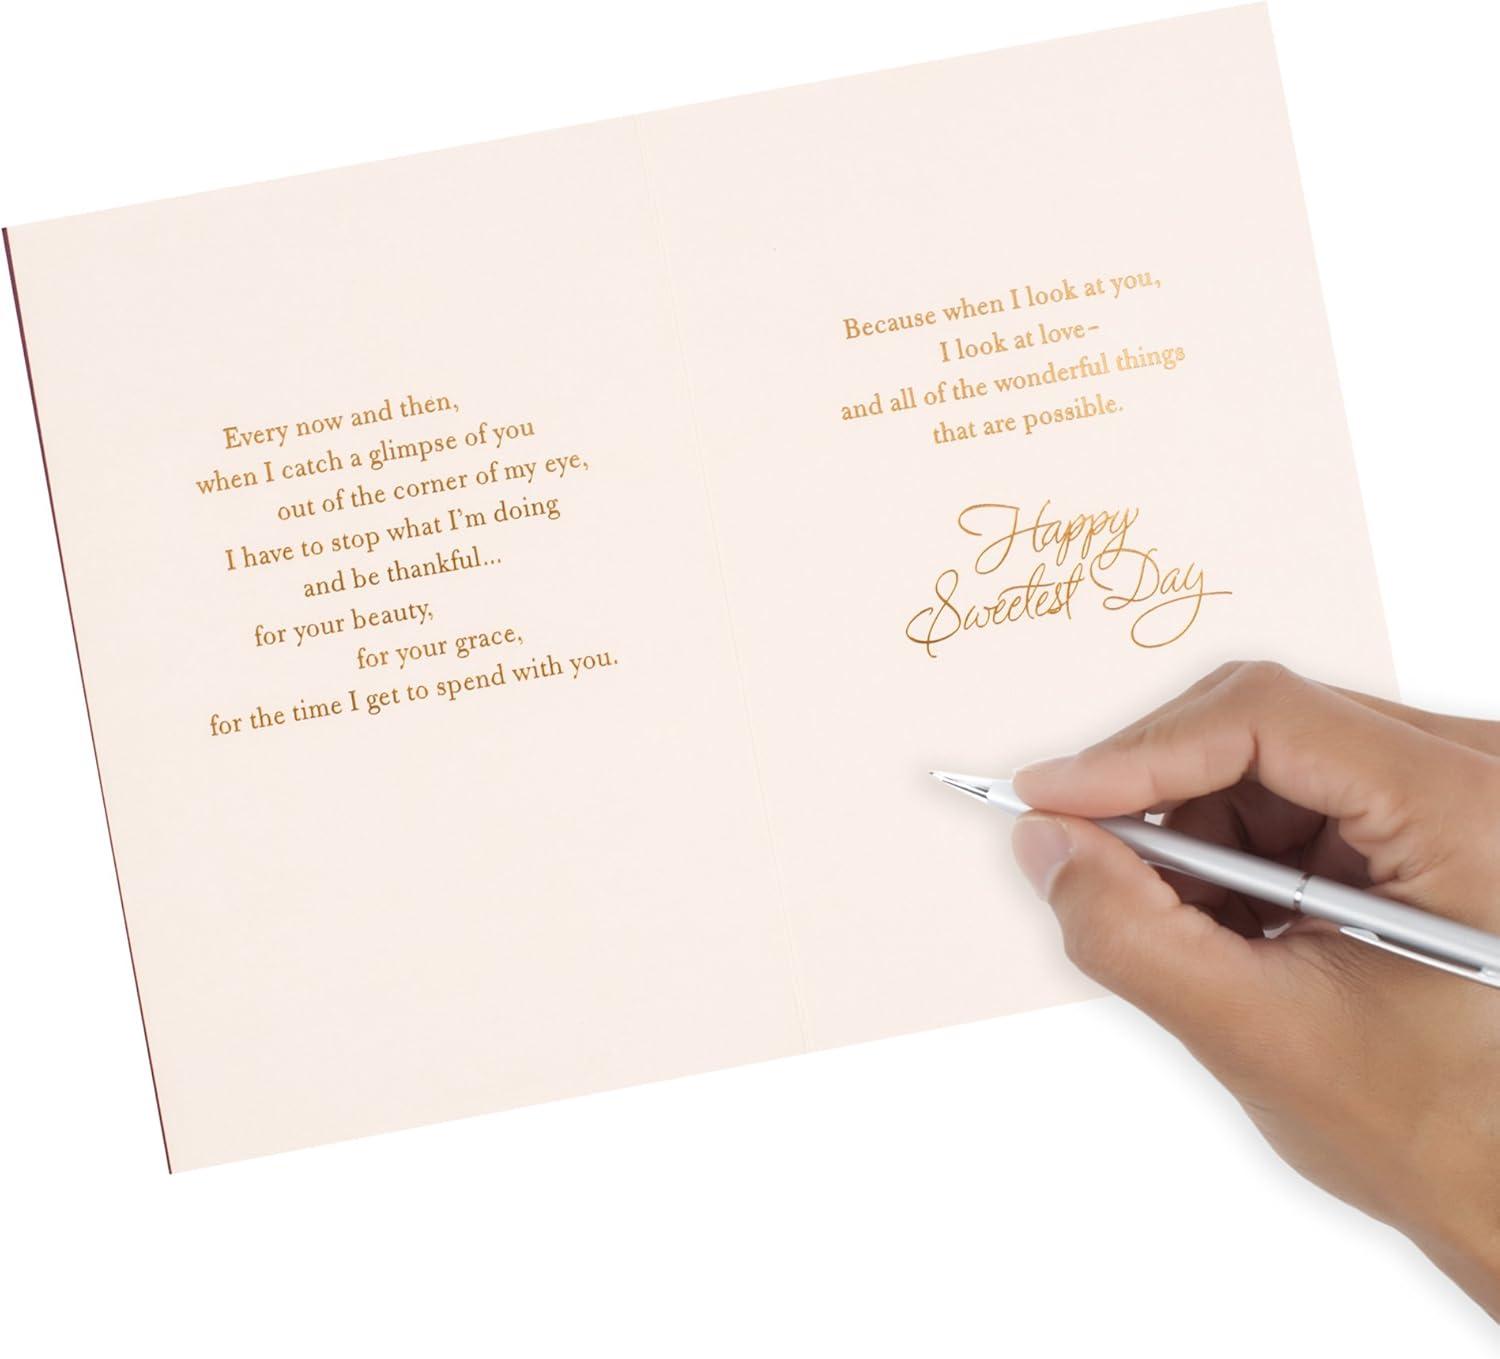 Every now and then,
when I catch a glimpse of you
out of the corner of my eye,
I have to stop what I'm doing
and be thankful...
for your beauty,
for your grace,
for the time I get to spend with you.
Because when I look at you,
I look at love–
and all of the wonderful things
that are possible.
Happy
Sweetest Day